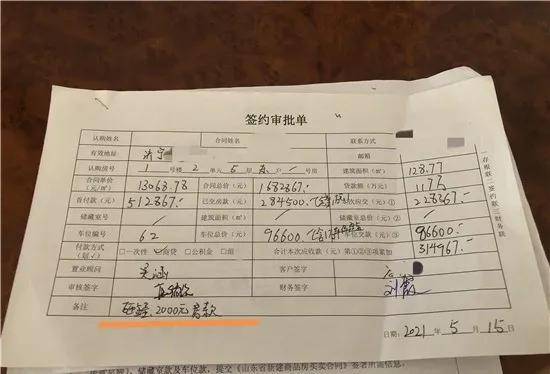 签约审批单
认购姓名 合同姓名 联系方式
有效地址 济宁 邮箱
认购房号 1 号楼 2 单元 5 层 东 户 / 号房 建筑面积(㎡) 128.77
合同单价(元/㎡) 13068.78 合同总价(元) 1682867.- 贷款额(万元) 117万
首付款(元) 512867.- 已交房款(元) 284500.- 次应交(元)① 228367.-
储藏室号 / 建筑面积(㎡) / 储藏室总价(元)② /
车位编号 62 车位总价(元) 96600.- 车位交款(元)③ 96600.-
付款方式(划√) □一次性 ☑商贷 □公积金 □组 合计本次应收款(元)第①②③项累加 314967.-
置业顾问 吴涵 客户签字
审核签字 财务签字 刘霞
备注 2000元房款
日期:2021年5月15日
存根联 签约联 财务联
储藏室款及车位款,提交《山东省新建商品房买卖合同》签署所需信息。